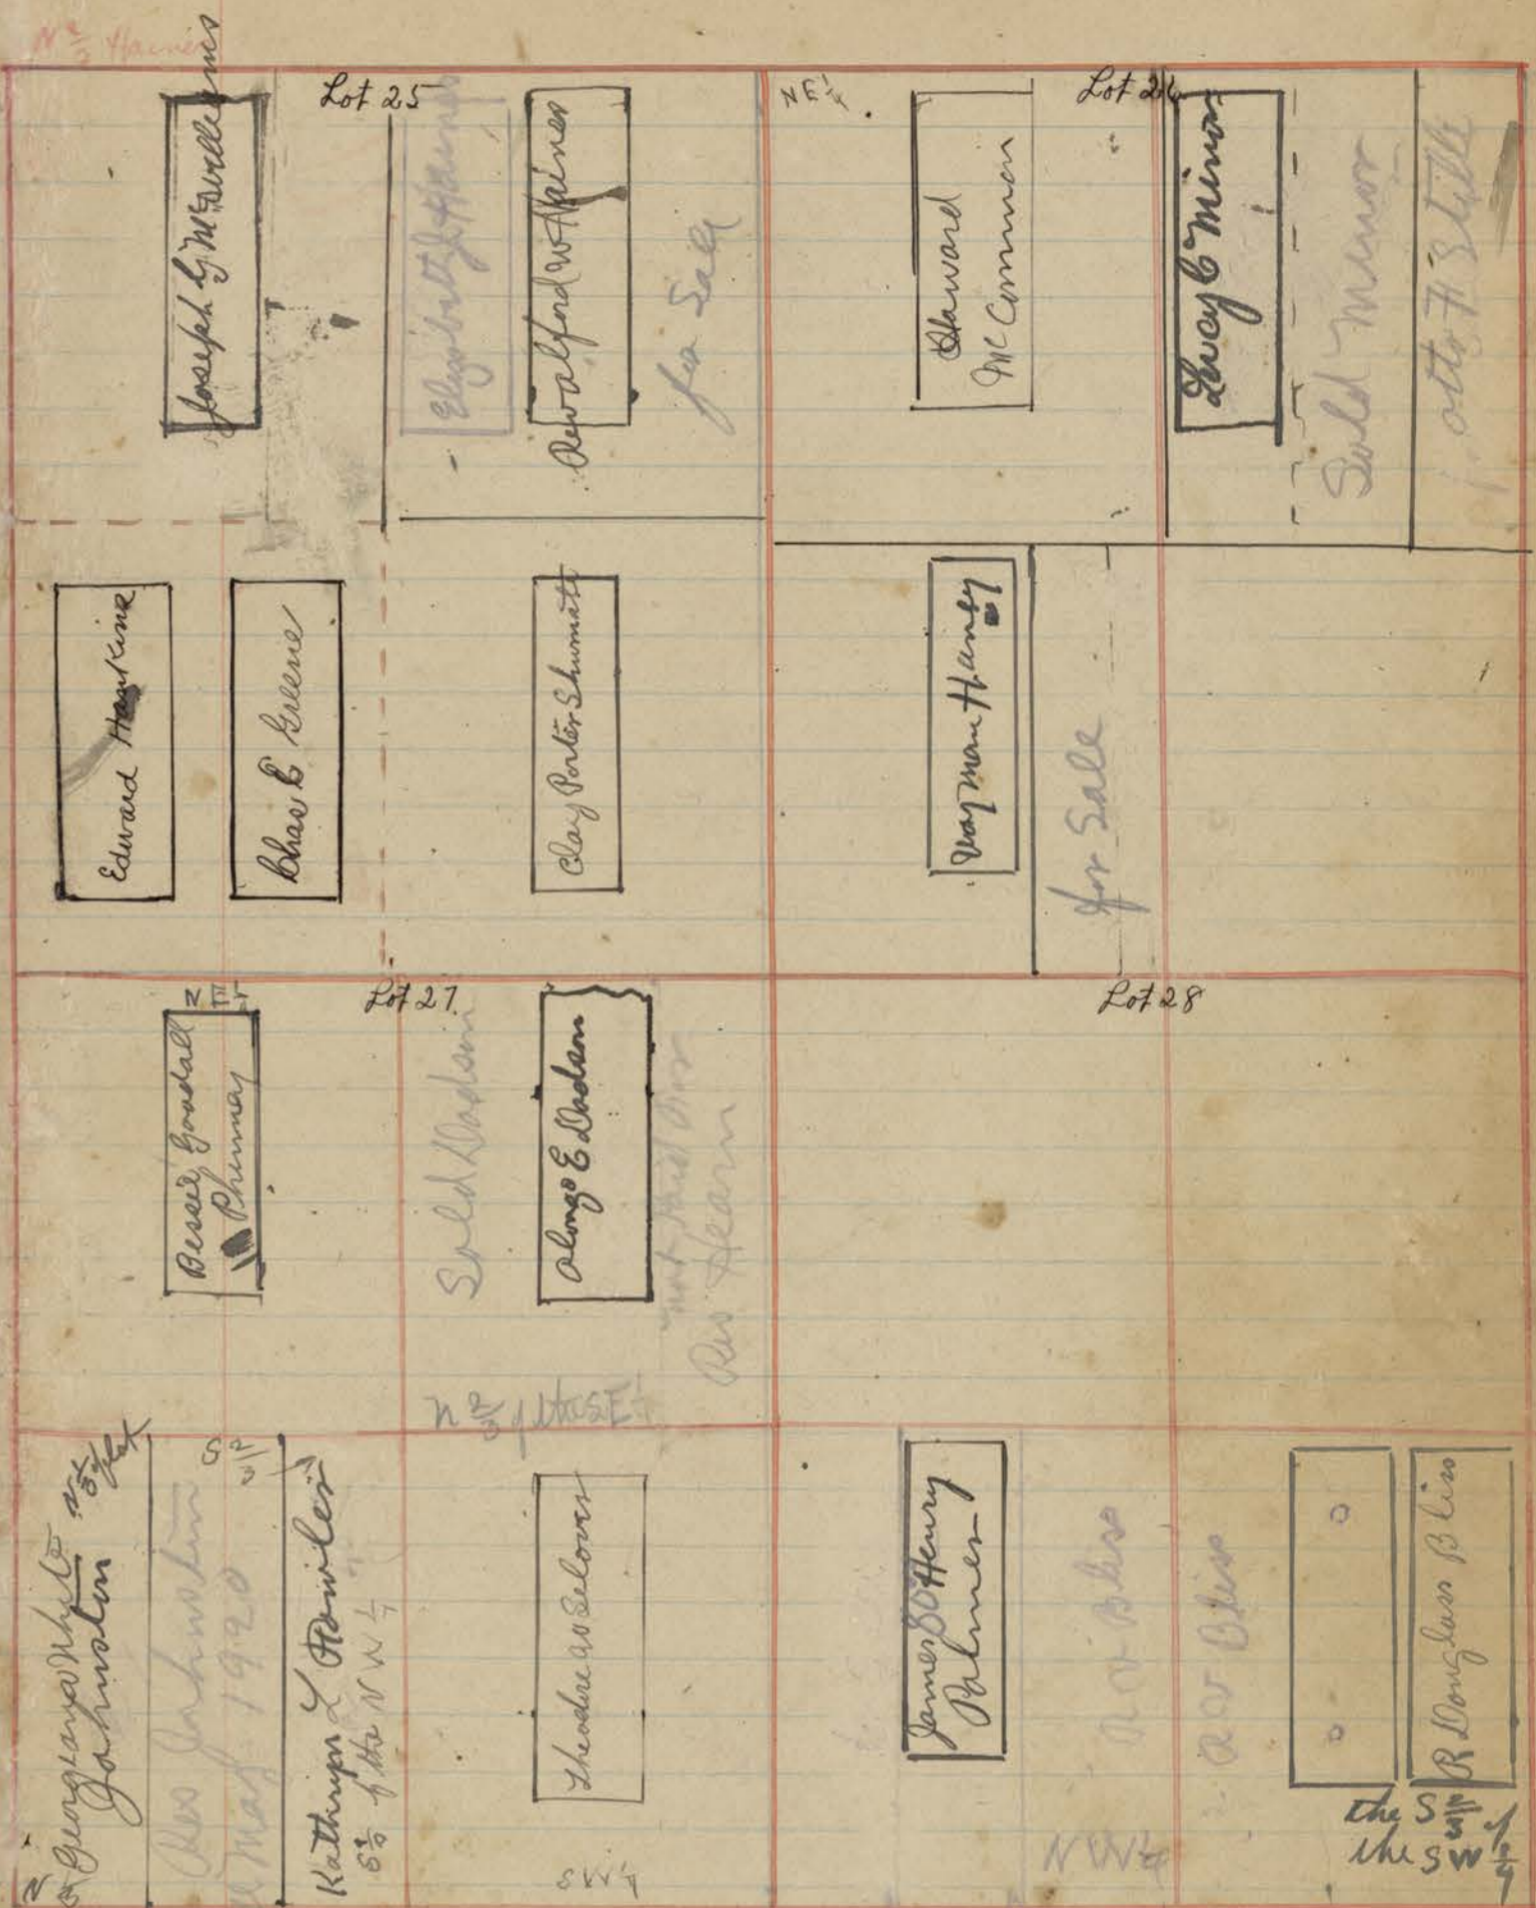 N 1/2 Haines
Lot 25
Joseph G. McWilliams
Elizabeth Haines
Rev Walford W Haines
for Sale
Edward Hawkins
Chas E Greene
Clay Porter Shumate
Lot 26
NE 1/4
Howard
McCommon
Levey C Minor
Sold Minor
Otto H Stille
Wayman Haney
for Sale
Lot 27.
N E 1/4
Bessie Goodall
Phinney
Sold Dodson
Alonzo E Dodson
not paid
Res Hearn
N 2/3 of the SE 1/4
Georgiana White
Johnston
Res Johnston
May 1920
S 2/3
Kathryn L Fowler
S 1/3 of the N W 1/4
Theodore W Selover
S W 1/4
Lot 28
James Henry
Palmer
R D Bliss
R D Bliss
N W 1/4
R Douglass Bliss
the S 2/3 of
the SW 1/4